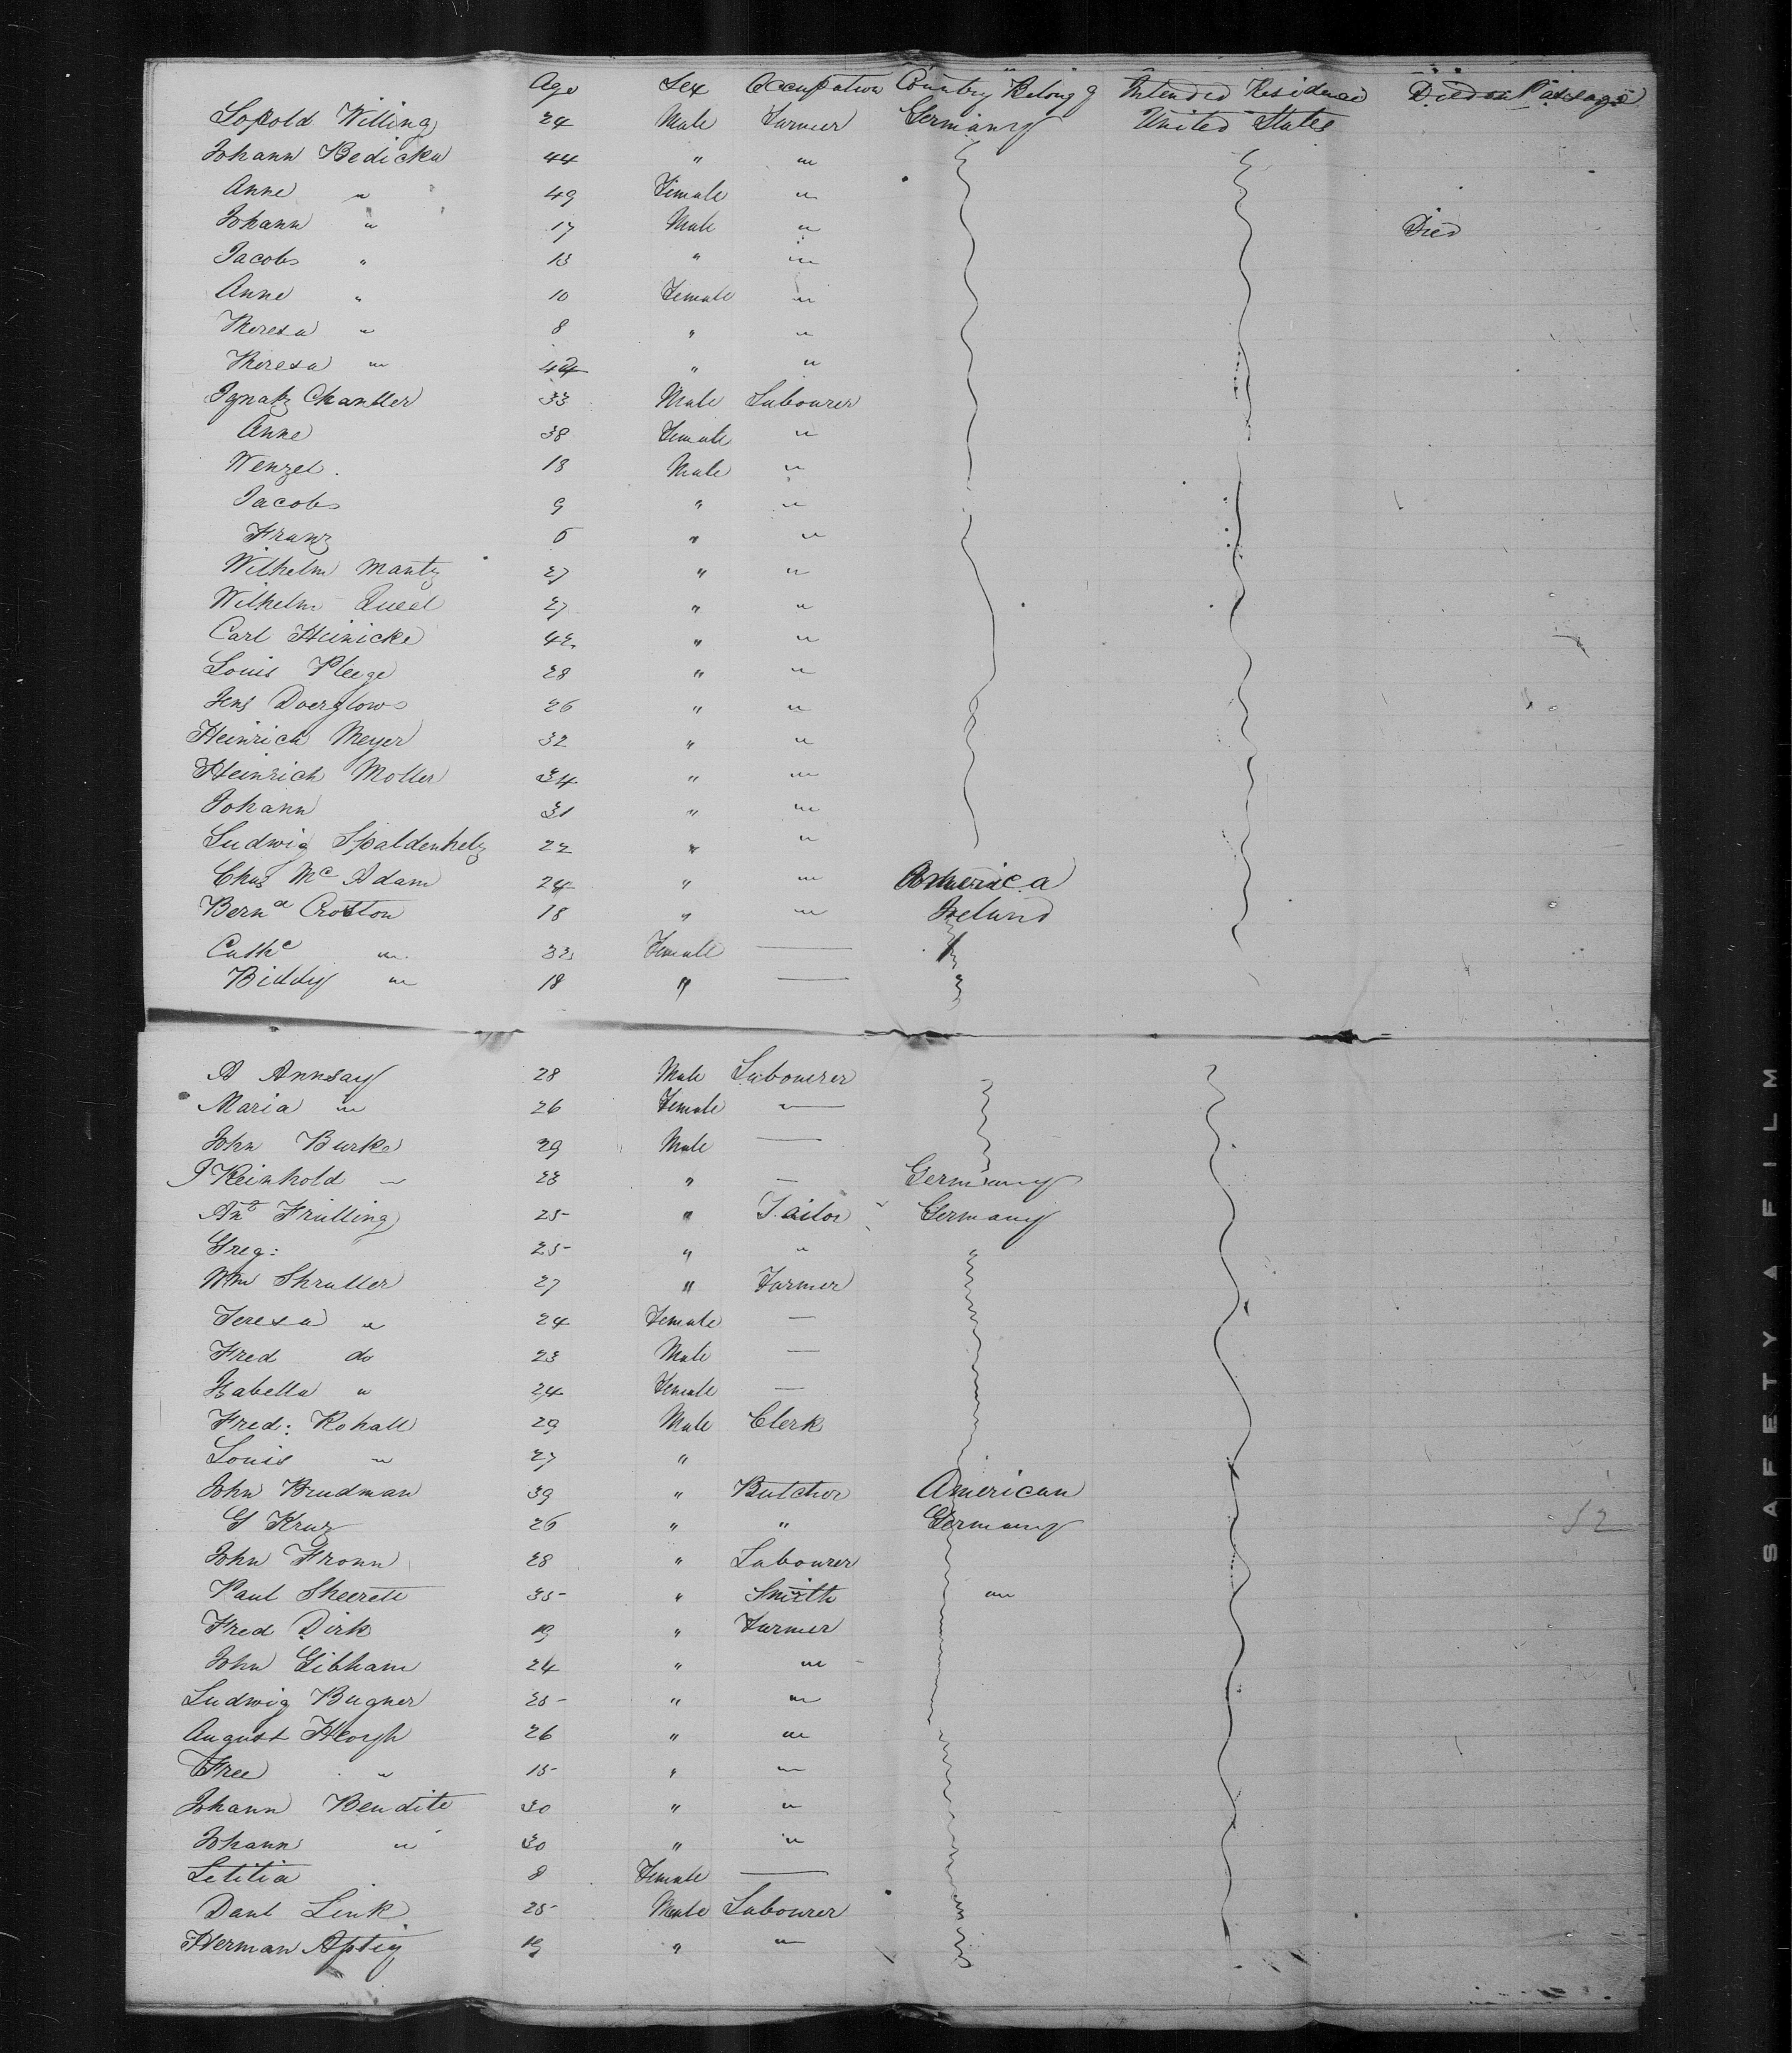 Age Sex Occupation Country Belongg Intended Residence Died on Passage
Lopold Willing 24 Male Farmer Germany United States
Johann Bedicka 44 " "
Anne " 49 Female "
Johann " 17 Male " Died
Jacob " 13 " "
Anne " 10 Female "
Theresa " 8 " "
Theresa " 44 " "
Ignatz Chantler 33 Male Labourer
Anne 38 Female "
Wenzel 13 Male "
Jacob 9 " "
Franz 6 " "
Wilhelm Mantz 27 " "
Wilhelm Queel 27 " "
Carl Heinicke 42 " "
Louis Pleege 28 " "
Jens Doerglow 26 " "
Heinrich Meyer 32 " "
Heinrich Moller 34 " "
Johann 31 " "
Ludwig Spaldenhelz 22 " "
Chas Mc Adam 24 " " America
Berna Croston 18 " " Ireland
Cathe " 33 Female —
Biddy " 18 " —
A Annsay 28 Male Labourer
Maria " 26 Female —
John Burke 29 Male —
J Reinhold " 23 " — Germany
Ant Frulling 25 " Tailor Germany
Greg: 25 " " "
Wm Shruller 27 " Farmer
Teresa " 24 Female —
Fred do 23 Male —
Isabella " 24 Female —
Fred: Rohall 29 Male Clerk
Louis " 27 "
John Brudman 39 " Butcher American
G Kruz 26 " " Germany
John Fronn 28 " Labourer
Paul Sheerete 35 " Smith "
Fred Dirk 19 " Farmer
John Gibham 24 " "
Ludwig Bugner 25 " "
August Heorgh 26 " "
Free " 15 " "
Johann Bendite 30 " "
Johann " 30 " "
Letitia 8 Female —
Danl Link 25 Male Labourer
Herman Aptig 19 " "
52
SAFETY A FILM